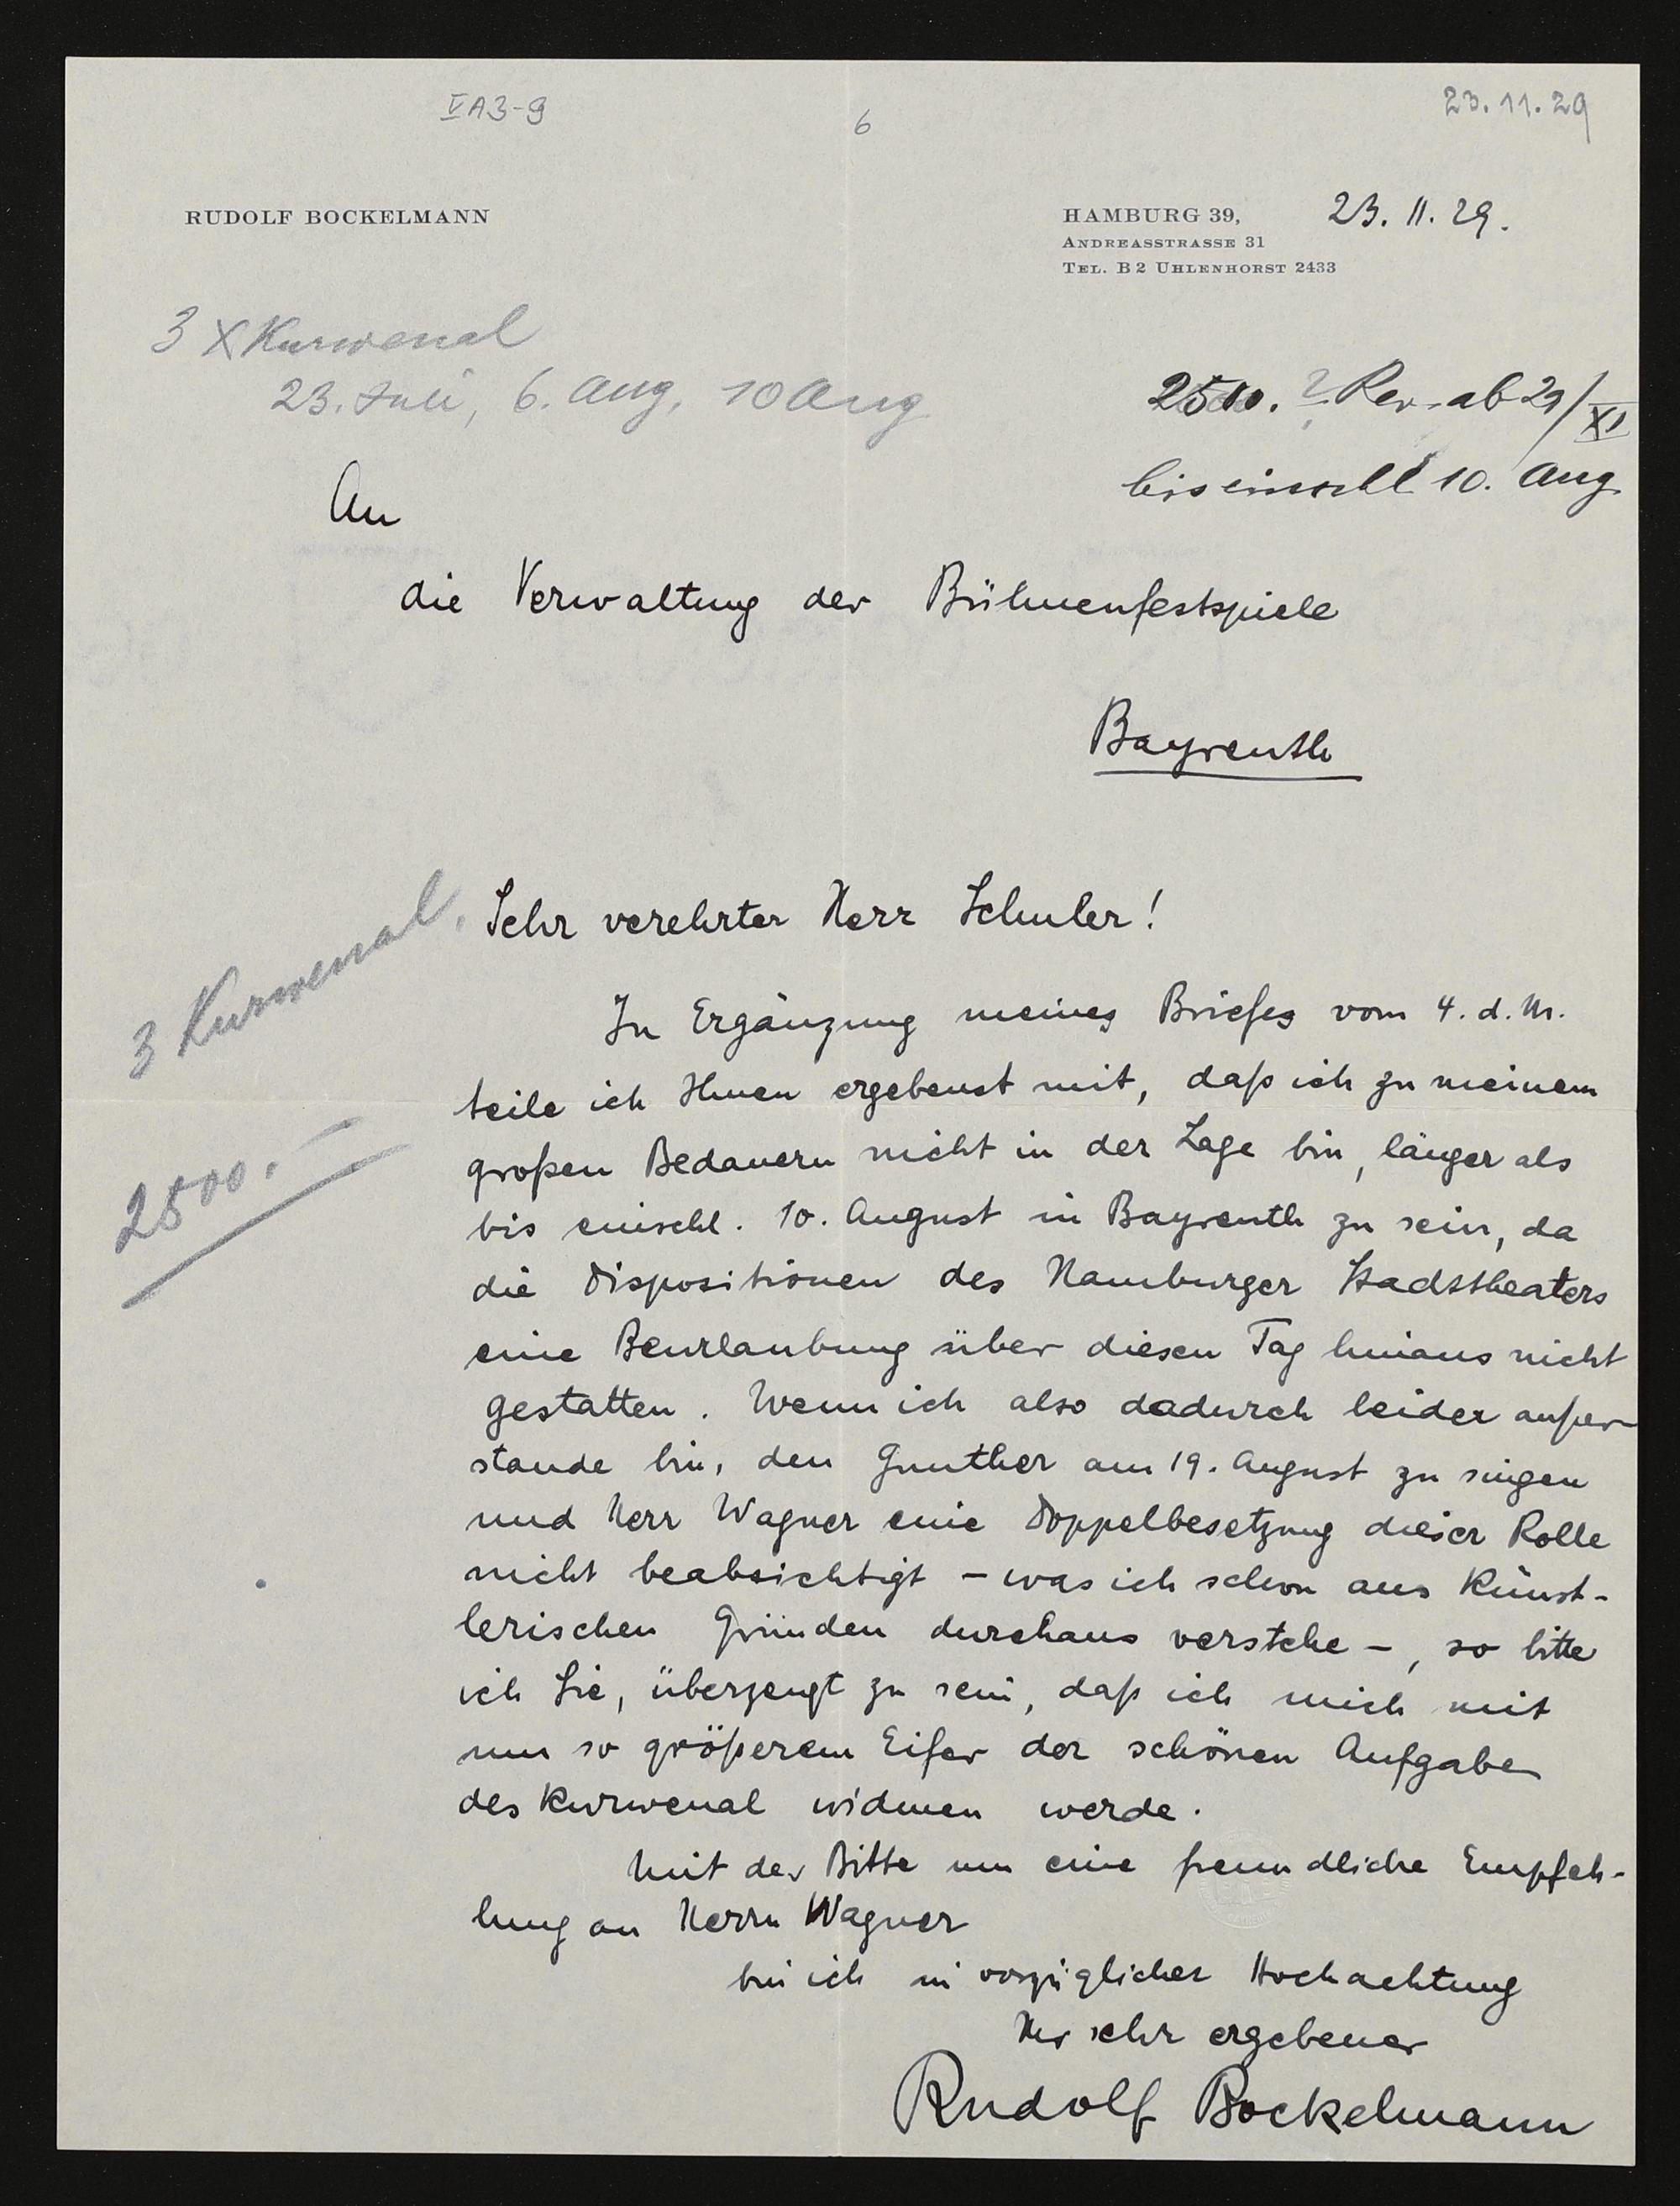 VA3-9
6
23.11.29
RUDOLF BOCKELMANN
HAMBURG 39,
23. 11. 29.
ANDREASSTRASSE 31
TEL. B2 UHLENHORST 2433
3 X Kurwenal
23. Juli, 6. Aug, 10 Aug
? ab 29/XI
bis einschl 10. Aug
An
die Verwaltung der Bühnenfestspiele
Bayreuth
3 Kurwenal.
2500.-
Sehr verehrter Herr Schuler!
In Ergänzung meines Briefes vom 4. d. M.
teile ich Ihnen ergebenst mit, daß ich zu meinem
großen Bedauern nicht in der Lage bin, länger als
bis einschl. 10. August in Bayreuth zu sein, da
die Dispositionen des Hamburger Stadttheaters
eine Beurlaubung über diesen Tag hinaus nicht
gestatten. Wenn ich also dadurch leider außer-
stande bin, den Gunther am 19. August zu singen
und Herr Wagner eine Doppelbesetzung dieser Rolle
nicht beabsichtigt – was ich schon aus künst-
lerischen Gründen durchaus verstehe –, so bitte
ich Sie, überzeugt zu sein, daß ich mich mit
um so größerem Eifer der schönen Aufgabe
des Kurwenal widmen werde.
Mit der Bitte um eine freundliche Empfeh-
lung an Herrn Wagner
bin ich in vorzüglicher Hochachtung
Ihr sehr ergebener
Rudolf Bockelmann